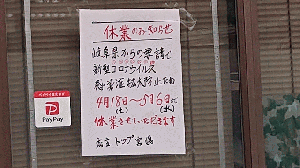 休業のお知らせ
岐阜県からの要請で
新型コロナウイルス
感染症拡大防止ため
4月18日〜5月6日迄
(土) (水)
休業させていただきます
店主 トップ宮嶋
PayPay